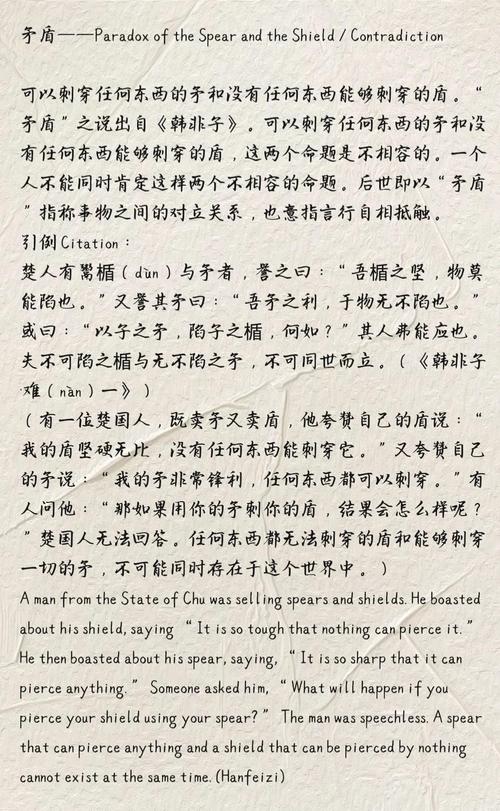 矛盾——Paradox of the Spear and the Shield / Contradiction
可以刺穿任何东西的矛和没有任何东西能够刺穿的盾。“
矛盾”之说出自《韩非子》。可以刺穿任何东西的矛和没
有任何东西能够刺穿的盾，这两个命题是不相容的。一个
人不能同时肯定这样两个不相容的命题。后世即以“矛盾
”指称事物之间的对立关系，也意指言行自相抵触。
引例Citation：
楚人有鬻楯（dùn）与矛者，誉之曰：“吾楯之坚，物莫
能陷也。”又誉其矛曰：“吾矛之利，于物无不陷也。”
或曰：“以子之矛，陷子之楯，何如？”其人弗能应也。
夫不可陷之楯与无不陷之矛，不可同世而立。（《韩非子
·难（nàn）一》）
（有一位楚国人，既卖矛又卖盾，他夸赞自己的盾说：“
我的盾坚硬无比，没有任何东西能刺穿它。”又夸赞自己
的矛说：“我的矛非常锋利，任何东西都可以刺穿。”有
人问他：“那如果用你的矛刺你的盾，结果会怎么样呢？
”楚国人无法回答。任何东西都无法刺穿的盾和能够刺穿
一切的矛，不可能同时存在于这个世界中。）
A man from the State of Chu was selling spears and shields. He boasted
about his shield, saying “It is so tough that nothing can pierce it.”
He then boasted about his spear, saying, “It is so sharp that it can
pierce anything.” Someone asked him, “What will happen if you
pierce your shield using your spear?” The man was speechless. A spear
that can pierce anything and a shield that can be pierced by nothing
cannot exist at the same time. (Hanfeizi)